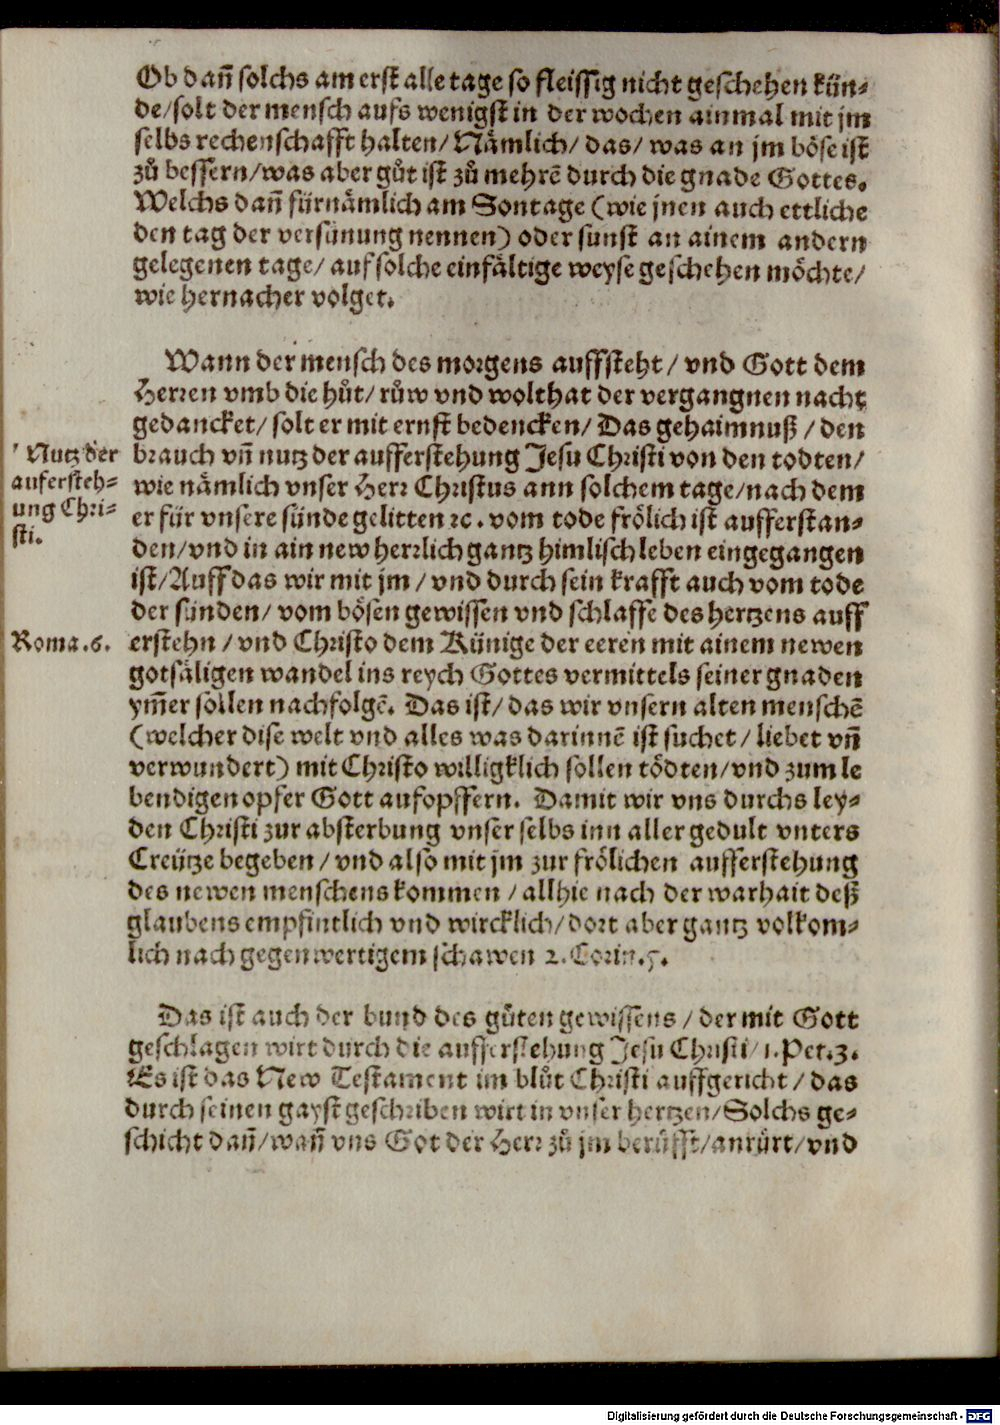 Ob dañ solchs am erst alle tage so fleissig nicht geschehen kün⸗
de/solt der mensch aufs wenigst in der wochen ainmal mit jm
selbs rechenschafft halten/ Nämlich/ das/ was an jm böse ist
zů bessern/was aber gůt ist zů mehrē durch die gnade Gottes.
Welchs dañ fürnämlich am Sontage (wie jnen auch ettliche
den tag der versünung nennen) oder sunst an ainem andern
gelegenen tage/ auf solche einfältige weyse geschehen möchte/
wie hernacher volget.
Wann der mensch des morgens auffsteht/ vnd Gott dem
Herren vmb die hůt/ růw vnd wolthat der vergangnen nacht
gedancket/ solt er mit ernst bedencken/ Das gehaimnuß/ den
Nutz der
aufersteh⸗
ung Chri⸗
sti.
brauch vñ nutz der aufferstehung Jesu Christi von den todten/
wie nämlich vnser Herr Christus ann solchem tage/nach dem
er für vnsere sünde gelitten ꝛc. vom tode frölich ist aufferstan⸗
den/vnd in ain new herrlich gantz himlisch leben eingegangen
ist/Auff das wir mit jm/ vnd durch sein krafft auch vom tode
der sünden/ vom bösen gewissen vnd schlaffe des hertzens auff
Roma.6.
erstehn/ vnd Christo dem Künige der eeren mit ainem newen
gotsäligen wandel ins reych Gottes vermittels seiner gnaden
ym̃er sollen nachfolgē. Das ist/ das wir vnsern alten menschē
(welcher dise welt vnd alles was darinnē ist suchet/ liebet vñ
verwundert) mit Christo willigklich sollen tödten/vnd zum le
bendigen opfer Gott aufopffern. Damit wir vns durchs ley⸗
den Christi zur absterbung vnser selbs inn aller gedult vnters
Creütze begeben/ vnd also mit jm zur frölichen aufferstehung
des newen menschens kommen/ allhie nach der warhait deß
glaubens empfintlich vnd wircklich/ dort aber gantz volkom⸗
lich nach gegenwertigem schawen 2. Corin.5.
Das ist auch der bund des gůten gewissens/ der mit Gott
geschlagen wirt durch die aufferstehung Jesu Christi/1.Pet.3.
Es ist das New Testament im blůt Christi auffgericht/ das
durch seinen gayst geschriben wirt in vnser hertzen/Solchs ge⸗
schicht dañ/wañ vns Got der Herr zů jm berůfft/anrürt/vnd
Digitalisierung gefördert durch die Deutsche Forschungsgemeinschaft - DFG